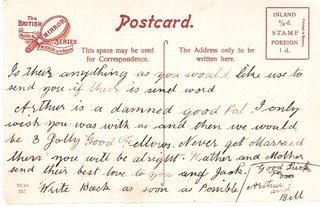 Postcard.
The
BRITISH
MIRROR
SERIES
INLAND
½d.
STAMP
FOREIGN
1 d.
This space may be used
for Correspondence.
The Address only to be
written here.
Is their anything as you would like use to
send you if their is send word
Arthur is a damned good Pal. I only
wish you was with us and then we would
be 3 Jolly Good Fellows. Never get Married
then you will be alright. Father and Mother
send their best love to you and Jack. Good Luck
from
Write Back as soon as Possible Arthur
and
Bill